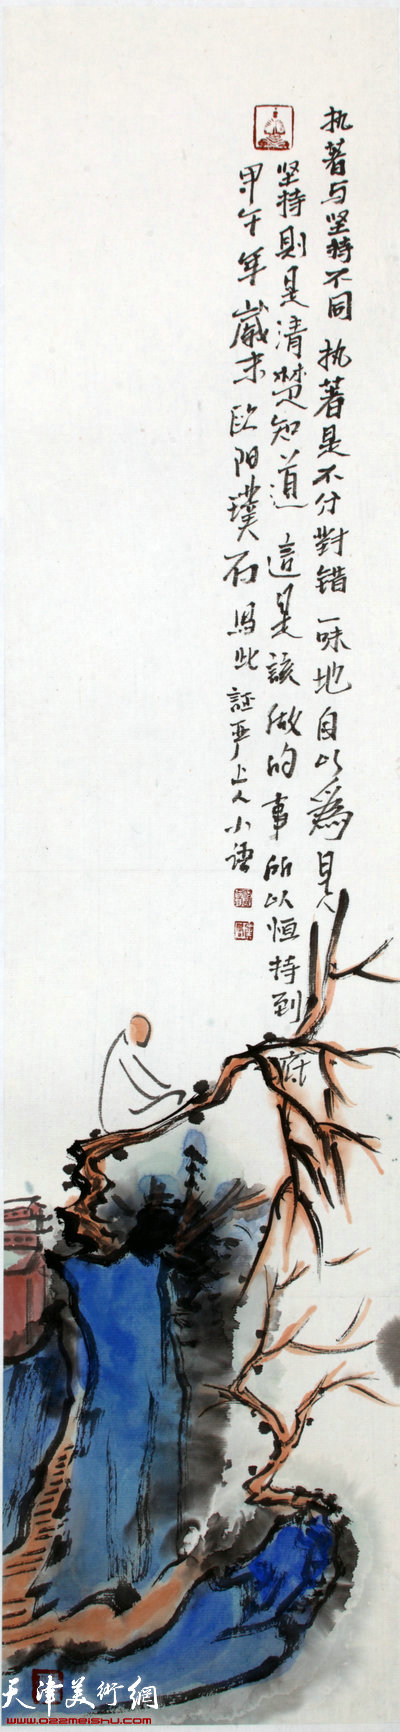 执著与坚持不同 执著是不分對錯 一味地自以為是
坚持則是清楚知道 這是該做的事 所以恒持到底
甲午年歲末 欧阳璞石 写此 証严上人小语
天津美術網
www.022meishu.com